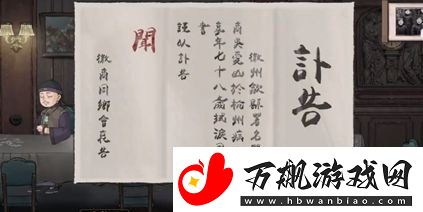 訃告
徽州歙縣著名
商吳愛山於杭州病
享年七十八歲拭淚
書
謹以訃告
聞
徽商同鄉會哀告
万飙游戏网
www.hbwanbiao.com